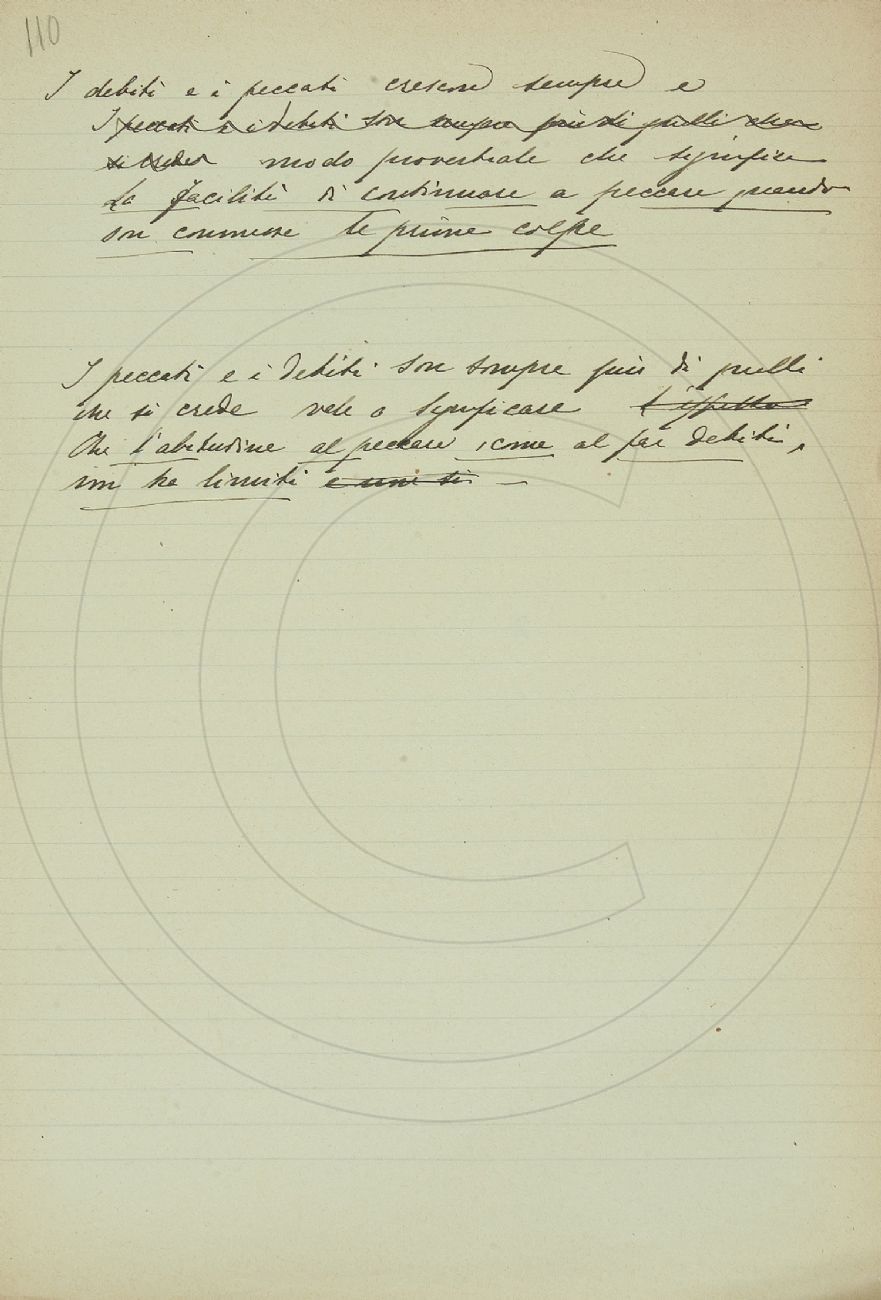 110
I debiti e i peccati crescon sempre e
I peccati e i debiti son sempre più di quelli che
si crede modo proverbiale che significa
La facilità di continuare a peccare quando
son commesse le prime colpe
I peccati e i debiti son sempre più di quelli
che si crede vale a significare l'effetto
Che l'abitudine al peccare, come al far debiti,
non ha limiti e non si —